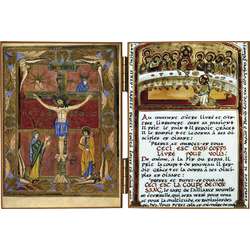 Au moment d'être livré et d'en-
trer librement dans sa passion
il prit le pain, il rendit grâce
il le rompit et le donna à ses dis-
ciples en disant:
Prenez et mangez-en tous
CECI EST MON CORPS
LIVRE POUR VOUS.
De même, à la fin du repas
il prit la coupe, de nouveau
il rendit grâce et la donna à ses
disciples en disant:
Prenez et buvez-en tous, car
CECI EST LA COUPE DE MON
SANG, le sang de l'alliance nouvelle
et éternelle, qui sera versé pour vous
et pour la multitude, en rémission
des